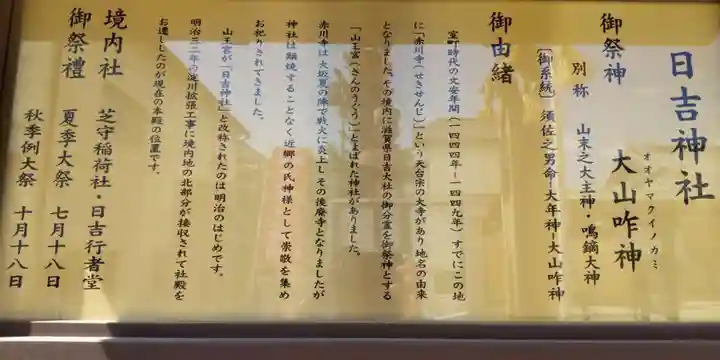 日吉神社
オオヤマクイノカミ
御祭神 大山咋神
別称 山末之大主神・鳴鏑大神
〔御系統〕須佐之男命―大年神―大山咋神
御由緒
室町時代の文安年間(一四四四年―一四四九年)すでにこの地
に「赤川寺(せきせんじ)」という天台宗の大寺があり地名の由来
となりました。その境内に滋賀県日吉大社の御分霊を御祭神とする
「山王宮(さんのうぐう)」とよばれた神社がありました。
赤川寺は大坂夏の陣で戦火に炎上しその後廃寺となりましたが
神社は類焼することなく近郷の氏神様として崇敬を集め
お祀りされてきました。
山王宮が「日吉神社」と改称されたのは明治のはじめです。
明治三二年の淀川拡張工事に境内地の北部分が接収されて社殿を
お遷ししたのが現在の本殿の位置です。
境内社 芝守稲荷社・日吉行者堂
御祭禮 夏季大祭 七月十八日
秋季例大祭 十月十八日